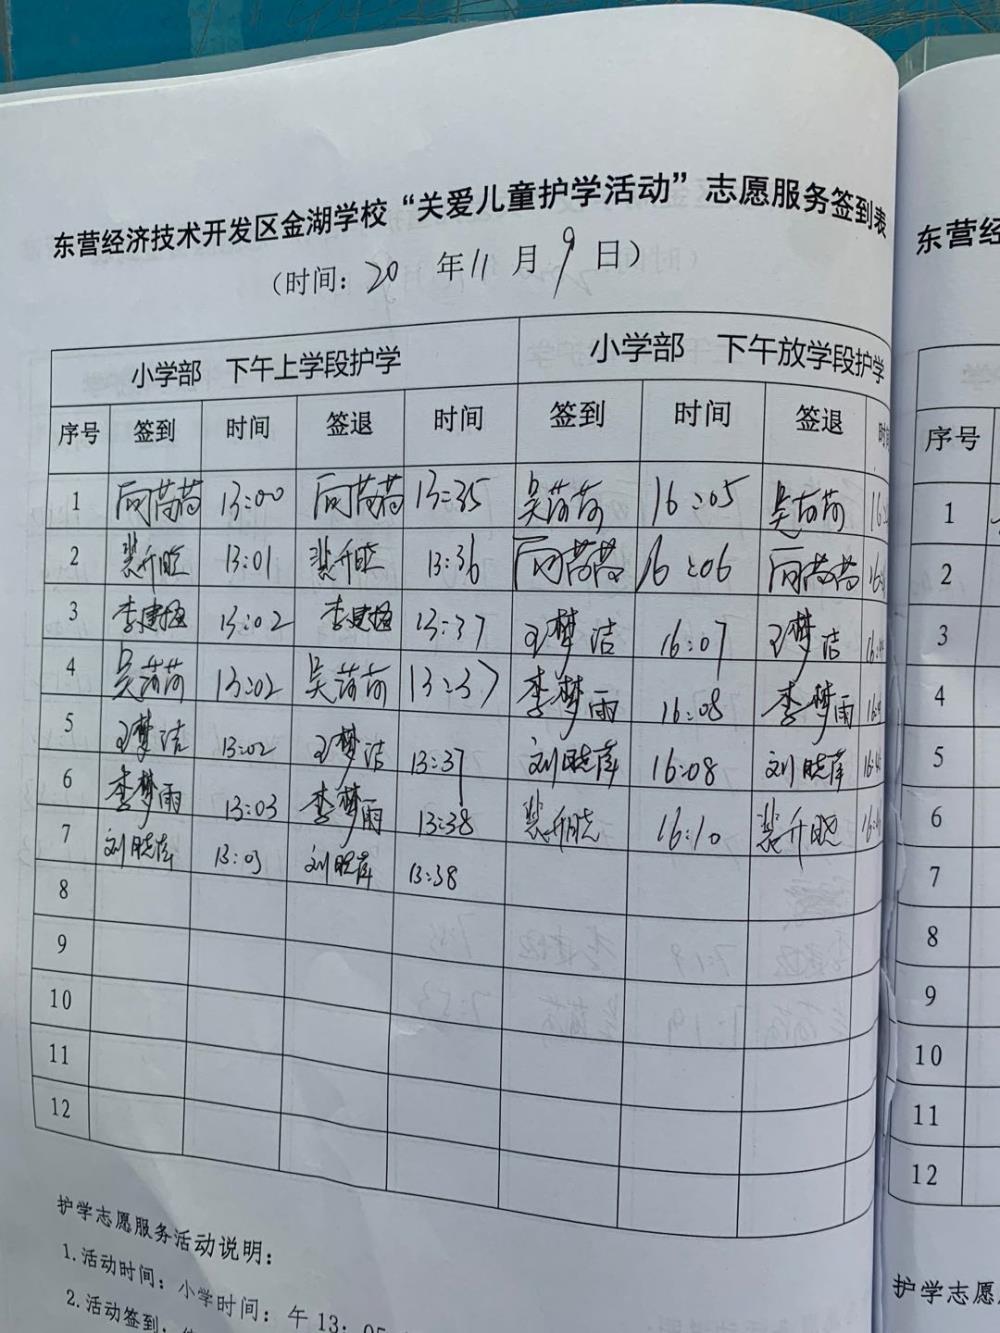 东营经济技术开发区金湖学校“关爱儿童护学活动”志愿服务签到表
(时间：20 年11月9日)
小学部 下午上学段护学 小学部 下午放学段护学
序号 签到 时间 签退 时间 签到 时间 签退 时
1 13:00 13:35 吴苘苘 16:05 吴苘苘 16:
2 裴升晓 13:01 裴升晓 13:36 16:06 16:
3 李建强 13:02 李建强 13:37 王梦洁 16:07 王梦洁 16:
4 吴苘苘 13:02 吴苘苘 13:37 李梦雨 16:08 李梦雨 16:
5 王梦洁 13:02 王梦洁 13:37 刘晓萍 16:08 刘晓萍 16:
6 李梦雨 13:03 李梦雨 13:38 裴升晓 16:10 裴升晓 16:
7 刘晓萍 13:03 刘晓萍 13:38
8
9
10
11
12
护学志愿服务活动说明：
1.活动时间：小学时间：午13：05
2.活动签到，
东营经
序号
1
2
3
4
5
6
7
8
9
10
11
12
护学志愿服